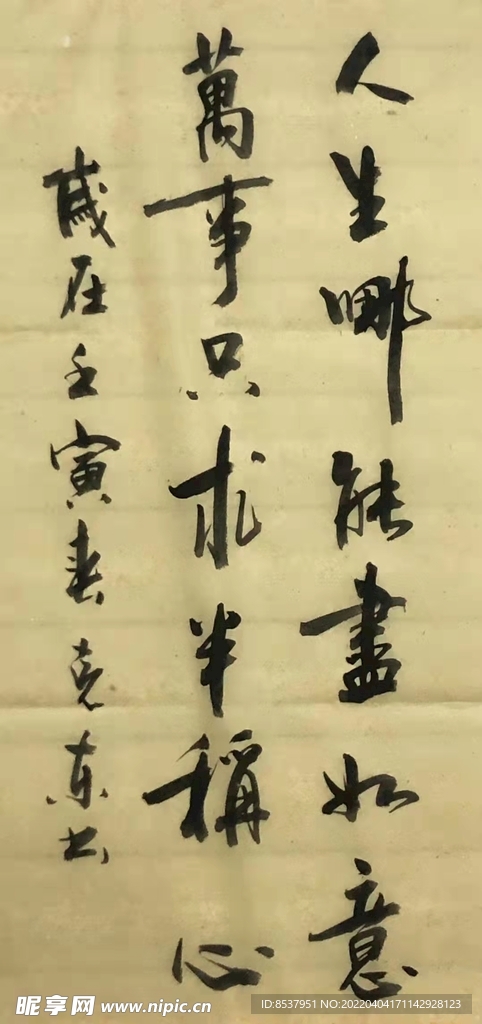 人生哪能盡如意
萬事只求半稱心
歲在壬寅春克东书
昵享网 www.nipic.cn
ID:8537951 NO:20220404171142928123